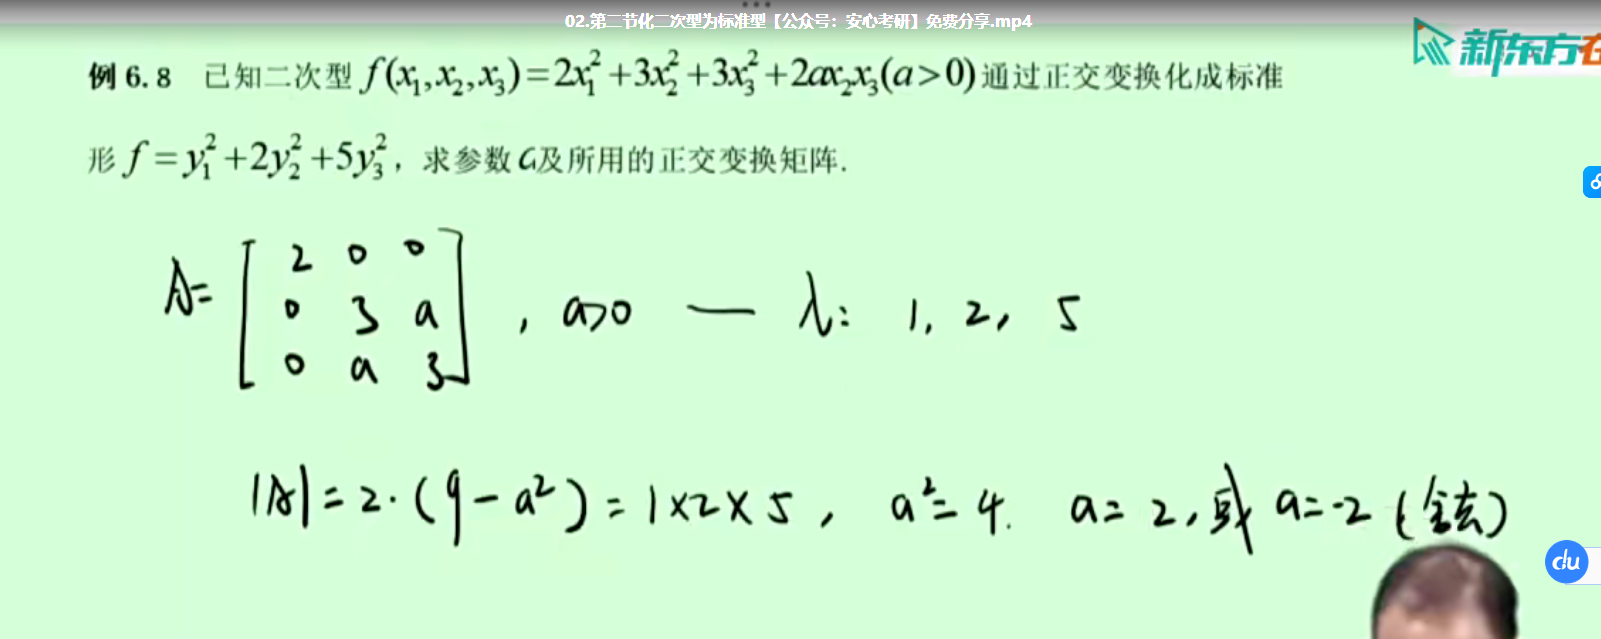 02.第二节化二次型为标准型【公众号：安心考研】免费分享.mp4
新东方在
例 6.8 已知二次型 f(x₁,x₂,x₃)=2x₁²+3x₂²+3x₃²+2ax₂x₃(a>0)通过正交变换化成标准
形 f=y₁²+2y₂²+5y₃²，求参数 a及所用的正交变换矩阵.
A= [ 2 0 0
0 3 a
0 a 3 ] , a>0 — λ: 1, 2, 5
|A|=2·(9-a²)=1×2×5, a²=4. a=2,或 a=-2 (舍去)
du